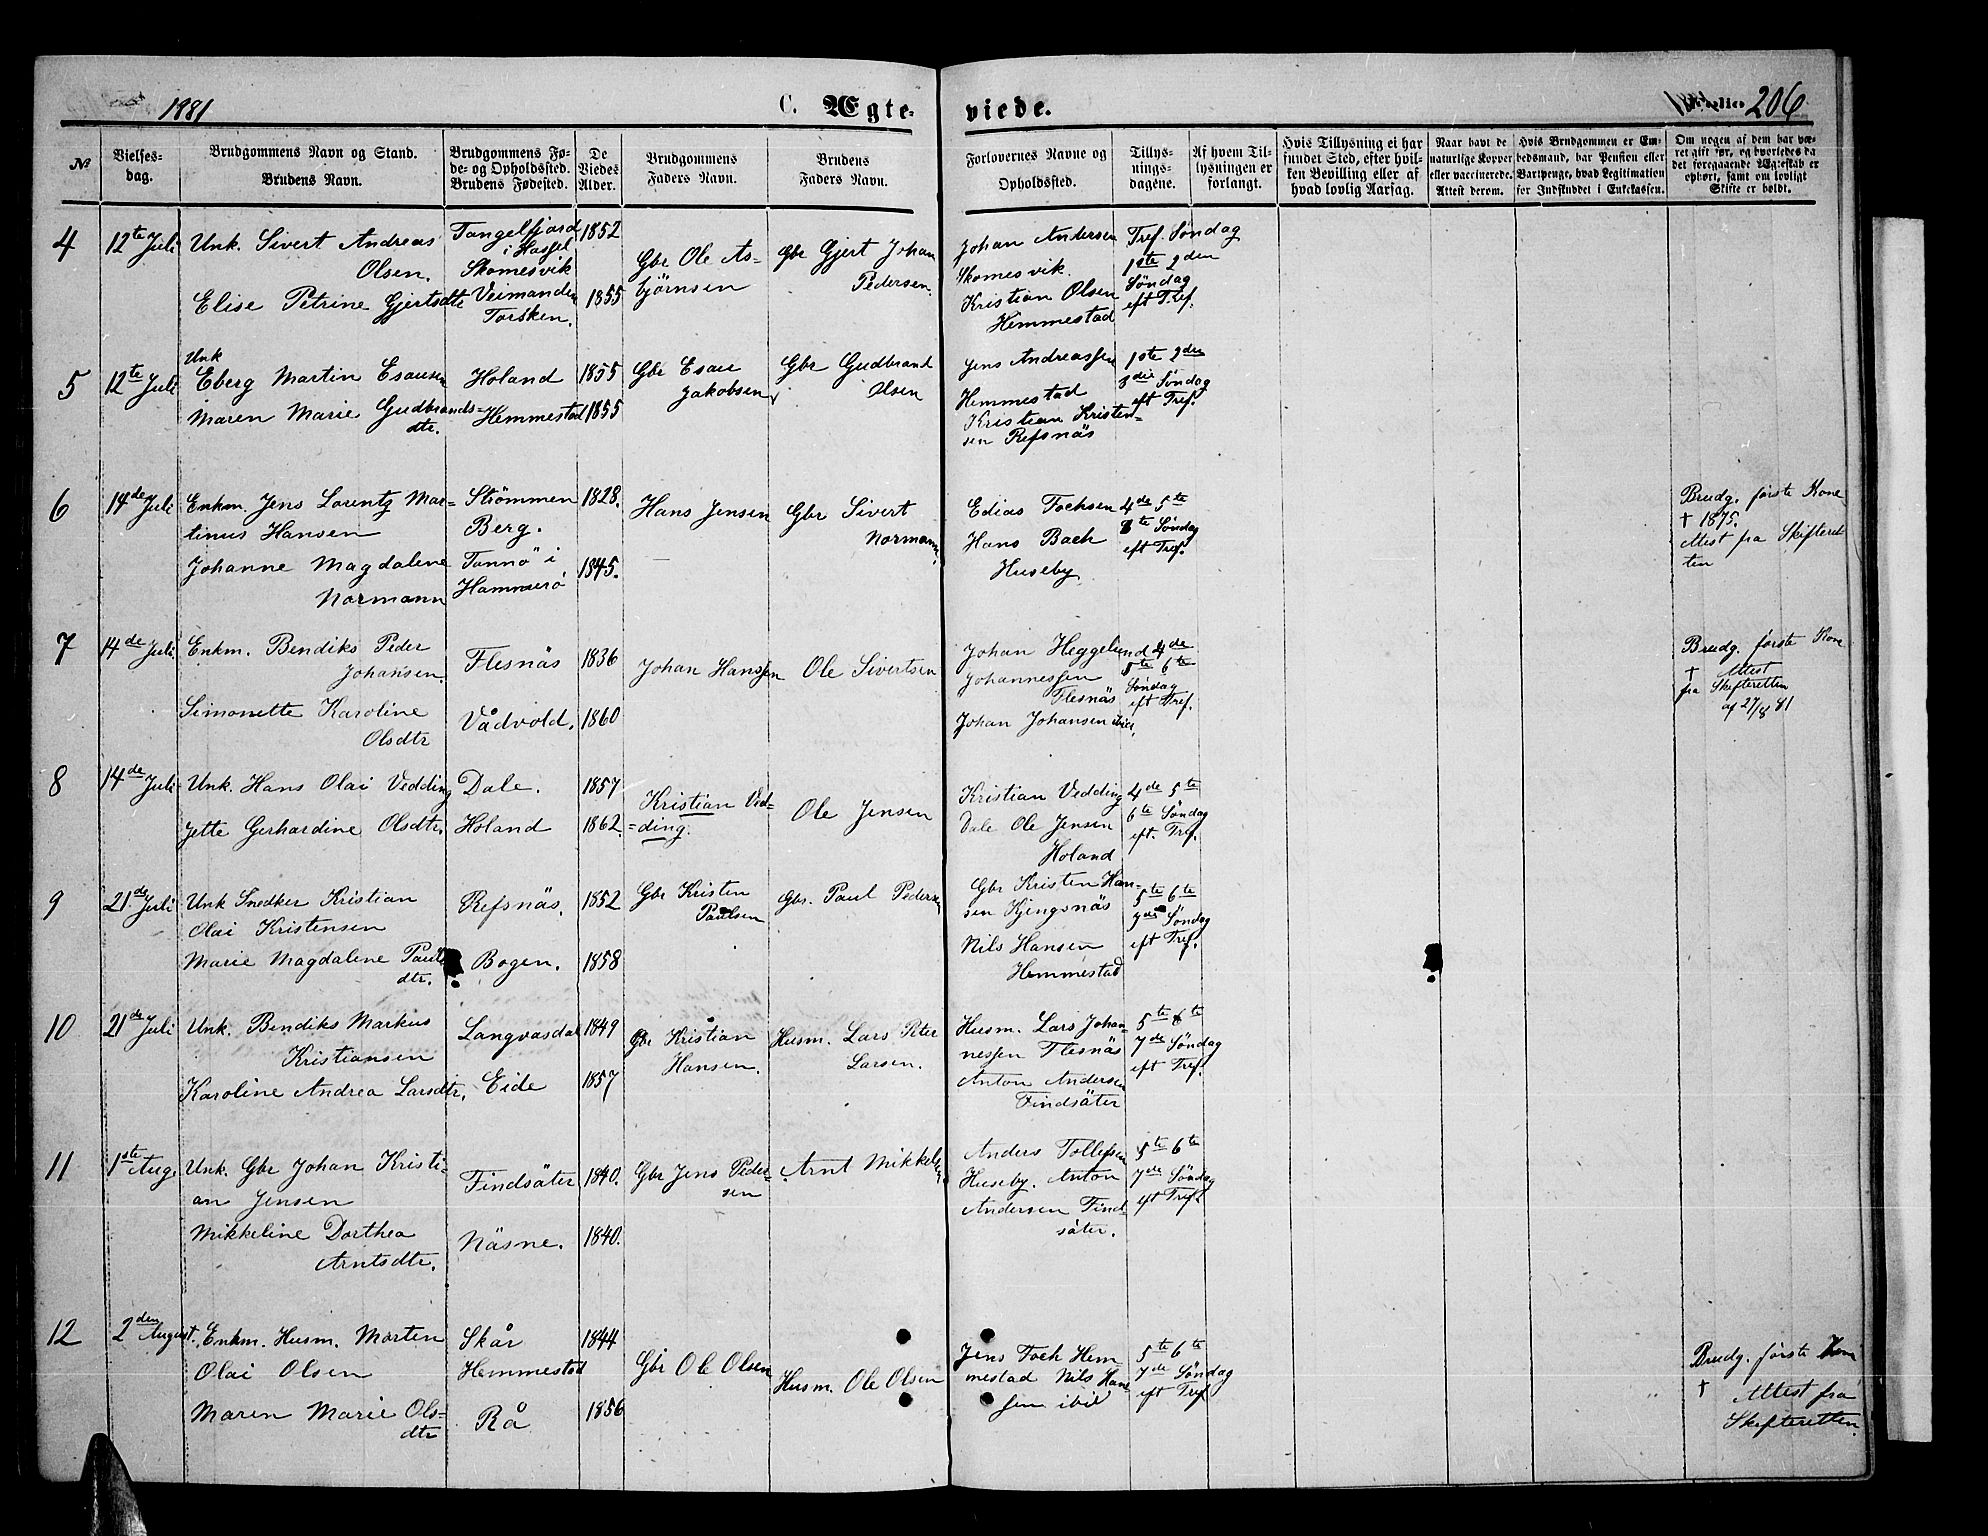 1881
C. Ægte-
viede.
Folio 206
№
Vielses-
dag.
Brudgommens Navn og Stand.
Brudens Navn.
Brudgommens Fø-
de- og Opholdssted.
Brudens Fødested.
De
Viedes
Alder.
Brudgommens
Faders Navn.
Brudens
Faders Navn.
Forlovernes Navne og
Opholdssted.
Tillys-
nings-
dagene.
Af hvem Til-
lysningen er
forlangt.
Hvis Tillysning ei har
fundet Sted, efter hvil-
ken Bevilling eller af
hvad lovlig Aarsag.
Naar havt de
naturlige Kopper
eller vaccinerede.
Attest derom.
Hvis Brudgommen er Em-
bedsmand, har Pension eller
Vartpenge, hvad Legitimation
for Indskuddet i Enkekassen.
Om nogen af dem har væ-
ret gift før, og hvorledes da
det foregaaende Ægteskab er
ophørt, samt om lovligt
Skifte er holdt.
4
12te Juli
Unk. Sivert Andreas
Olsen.
Elise Petrine Gjertsdtr
Tangelfjord
i Hassel
Skomesvik
Veimanden
Torsken.
1852
1855
Gbr Ole As-
bjørnsen
Gbr Gjert Johan
Pedersen.
Johan Andersen
Skomesvik.
Kristian Olsen
Hemmestad
Tref. Søndag
1ste 2den
Søndag
eft Tref.
5
12te Juli
Unk
Eberg Martin Esausen
Maren Marie Gudbrands-
dtr.
Holand
Hemmestad
1855
1855
Gbr Esau
Jakobsen
Gbr Gudbrand
Olsen
Jens Andreassen
Hemmestad
Kristian Kristen-
sen Refsnäs
1ste 2den
3die Søndag
eft Tref.
6
14de Juli
Enkm. Jens Lorentz Mar-
tinus Hansen
Johanne Magdalene
Normann
Strömmen
Berg.
Tannö i
Hammerö
1828.
1845.
Hans Jensen
Gbr Sivert
Normann.
Edias Tochsen
Hans Bach
Huseby
4de 5te
6te Søndag
eft Tref.
Brudg. første Kone
† 1875.
Attest fra Skifteret-
ten
7
14de Juli
Enkm. Bendiks Peder
Johansen.
Simonette Karoline
Olsdtr
Flesnäs
Vådvold.
1836
1860
Johan Hanssen
Ole Sivertsen
Johan Heggelund
Johannessen
Flesnäs
Johan Johansen ibid.
4de
5te 6te
Søndag
eft Tref.
Brudg. første Kone
† Attest
fra Skifteretten
af 27/8 81
8
14de Juli
Unk. Hans Olai Vedding
Jette Gerhardine Olsdtr.
Dale.
Holand
1857
1862.
Kristian Ved-
=ding.
Ole Jensen
Kristian Vedding
Dale Ole Jensen
Holand
4de 5te
6te Søndag
eft. Tref.
9
21de Juli
Unk Snedker Kristian
Olai Kristensen
Marie Magdalene Pauls
dtr.
Refsnäs.
Bogen.
1852
1858
Gbr Kristen
Paulsen
Gbr. Paul Pedersen
Gbr Kristen Han-
sen Kjengsnäs
Nils Hansen
Hemmestad
5te 6te
7de Søndag
eft Tref.
10
21de Juli
Unk. Bendiks Markus
Kristiansen
Karoline Andrea Larsdtr.
Langvasdal
Eide
1849
1857
Gbr Kristian
Hansen.
Husm. Lars Peter
Larsen.
Husm. Lars Johan-
nessen Flesnäs
Anton Andersen
Findsäter
5te 6te
7de Søndag
eft Tref.
11
1ste Aug.
Unk. Gbr Johan Kristi-
an Jensen
Mikkeline Dorthea
Arntsdtr.
Findsäter
Näsne.
1840.
1840.
Gbr Jens Peder-
sen
Arnt Mikkelsen
Anders Tollefsen
Huseby. Anton
Andersen Find-
säter.
5te 6te
7de Søndag
eft Tref.
12
2den August.
Enkm. Husm. Morten
Olai Olsen
Maren Marie Ols-
dtr
Skår
Hemmestad
Rå
1844
1856
Gbr Ole Olsen
Husm. Ole Olsen
Jens Toch Hem-
mestad Nils Han-
sen ibid
5te 6te
7de Søndag
eft Tref.
Brudg. første Kone
† Attest fra
Skifteretten.